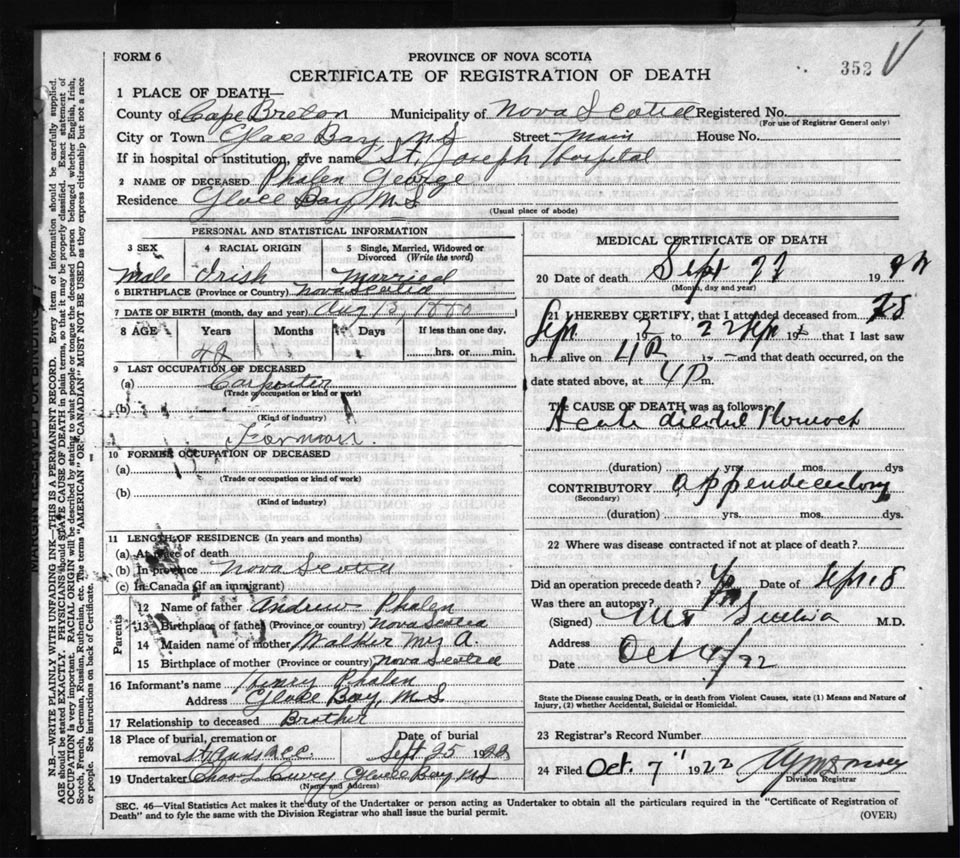 FORM 6
PROVINCE OF NOVA SCOTIA
CERTIFICATE OF REGISTRATION OF DEATH
352
1 PLACE OF DEATH—
County of Cape Breton Municipality of Nova Scotia Registered No.
(For use of Registrar General only)
City or Town Glace Bay, N.S Street Main House No.
If in hospital or institution, give name St. Joseph Hospital
2 NAME OF DECEASED Phalen George
Residence Glace Bay N.S.
(Usual place of abode)
PERSONAL AND STATISTICAL INFORMATION
3 SEX 4 RACIAL ORIGIN 5 Single, Married, Widowed or Divorced (Write the word)
Male Irish Married
6 BIRTHPLACE (Province or Country) Nova Scotia
7 DATE OF BIRTH (month, day and year) Aug 13, 1880
8 AGE Years Months Days If less than one day,
hrs. or min.
9 LAST OCCUPATION OF DECEASED
(a) Carpenter
(Trade or occupation or kind of work)
(b)
(Kind of industry)
10 FORMER OCCUPATION OF DECEASED
(a)
(Trade or occupation or kind of work)
(b)
(Kind of industry)
11 LENGTH OF RESIDENCE (In years and months)
(a) At place of death
(b) In province Nova Scotia
(c) In Canada (if an immigrant)
Parents
12 Name of father Andrew Phalen
13 Birthplace of father (Province or country) Nova Scotia
14 Maiden name of mother Walker A.
15 Birthplace of mother (Province or country) Nova Scotia
16 Informant's name Henry Phalen
Address Glace Bay, N.S.
17 Relationship to deceased Brother
18 Place of burial, cremation or removal St Anns Date of burial Sept 25 1922
19 Undertaker Curry Glace Bay NS
(Name and Address)
MEDICAL CERTIFICATE OF DEATH
20 Date of death Sept 22 19
(Month, day and year)
21 I HEREBY CERTIFY, that I attended deceased from
to 22 Sep 19 that I last saw
h alive on 4 P 19 and that death occurred, on the
date stated above, at 4 P m.
The CAUSE OF DEATH was as follows:
Acute stomach
(duration) yrs. mos. dys
CONTRIBUTORY appendicectomy
(Secondary)
(duration) yrs. mos. dys.
22 Where was disease contracted if not at place of death?
Did an operation precede death? Yes Date of Sept 18
Was there an autopsy? No
(Signed) M.D.
Address
Date Oct 4/22
State the Disease causing Death, or in death from Violent Causes, state (1) Means and Nature of
Injury, (2) whether Accidental, Suicidal or Homicidal.
23 Registrar's Record Number
24 Filed Oct. 7" 1922
Division Registrar
SEC. 46—Vital Statistics Act makes it the duty of the Undertaker or person acting as Undertaker to obtain all the particulars required in the "Certificate of Registration of
Death" and to fyle the same with the Division Registrar who shall issue the burial permit.
(OVER)
MARGIN RESERVED FOR BINDING
N.B.—WRITE PLAINLY WITH UNFADING INK—THIS IS A PERMANENT RECORD. Every item of information should be carefully supplied.
AGE should be stated EXACTLY. PHYSICIANS should STATE CAUSE OF DEATH in plain terms, so that it may be properly classified. Exact statement of
OCCUPATION is very important. RACIAL ORIGIN will be described by stating to what people or tongue the deceased person belonged whether English, Irish,
Scotch, French, German, Russian, Ruthenian, etc. The terms "AMERICAN" OR "CANADIAN" MUST NOT BE USED as they express citizenship but not a race
or people. See instructions on back of Certificate.